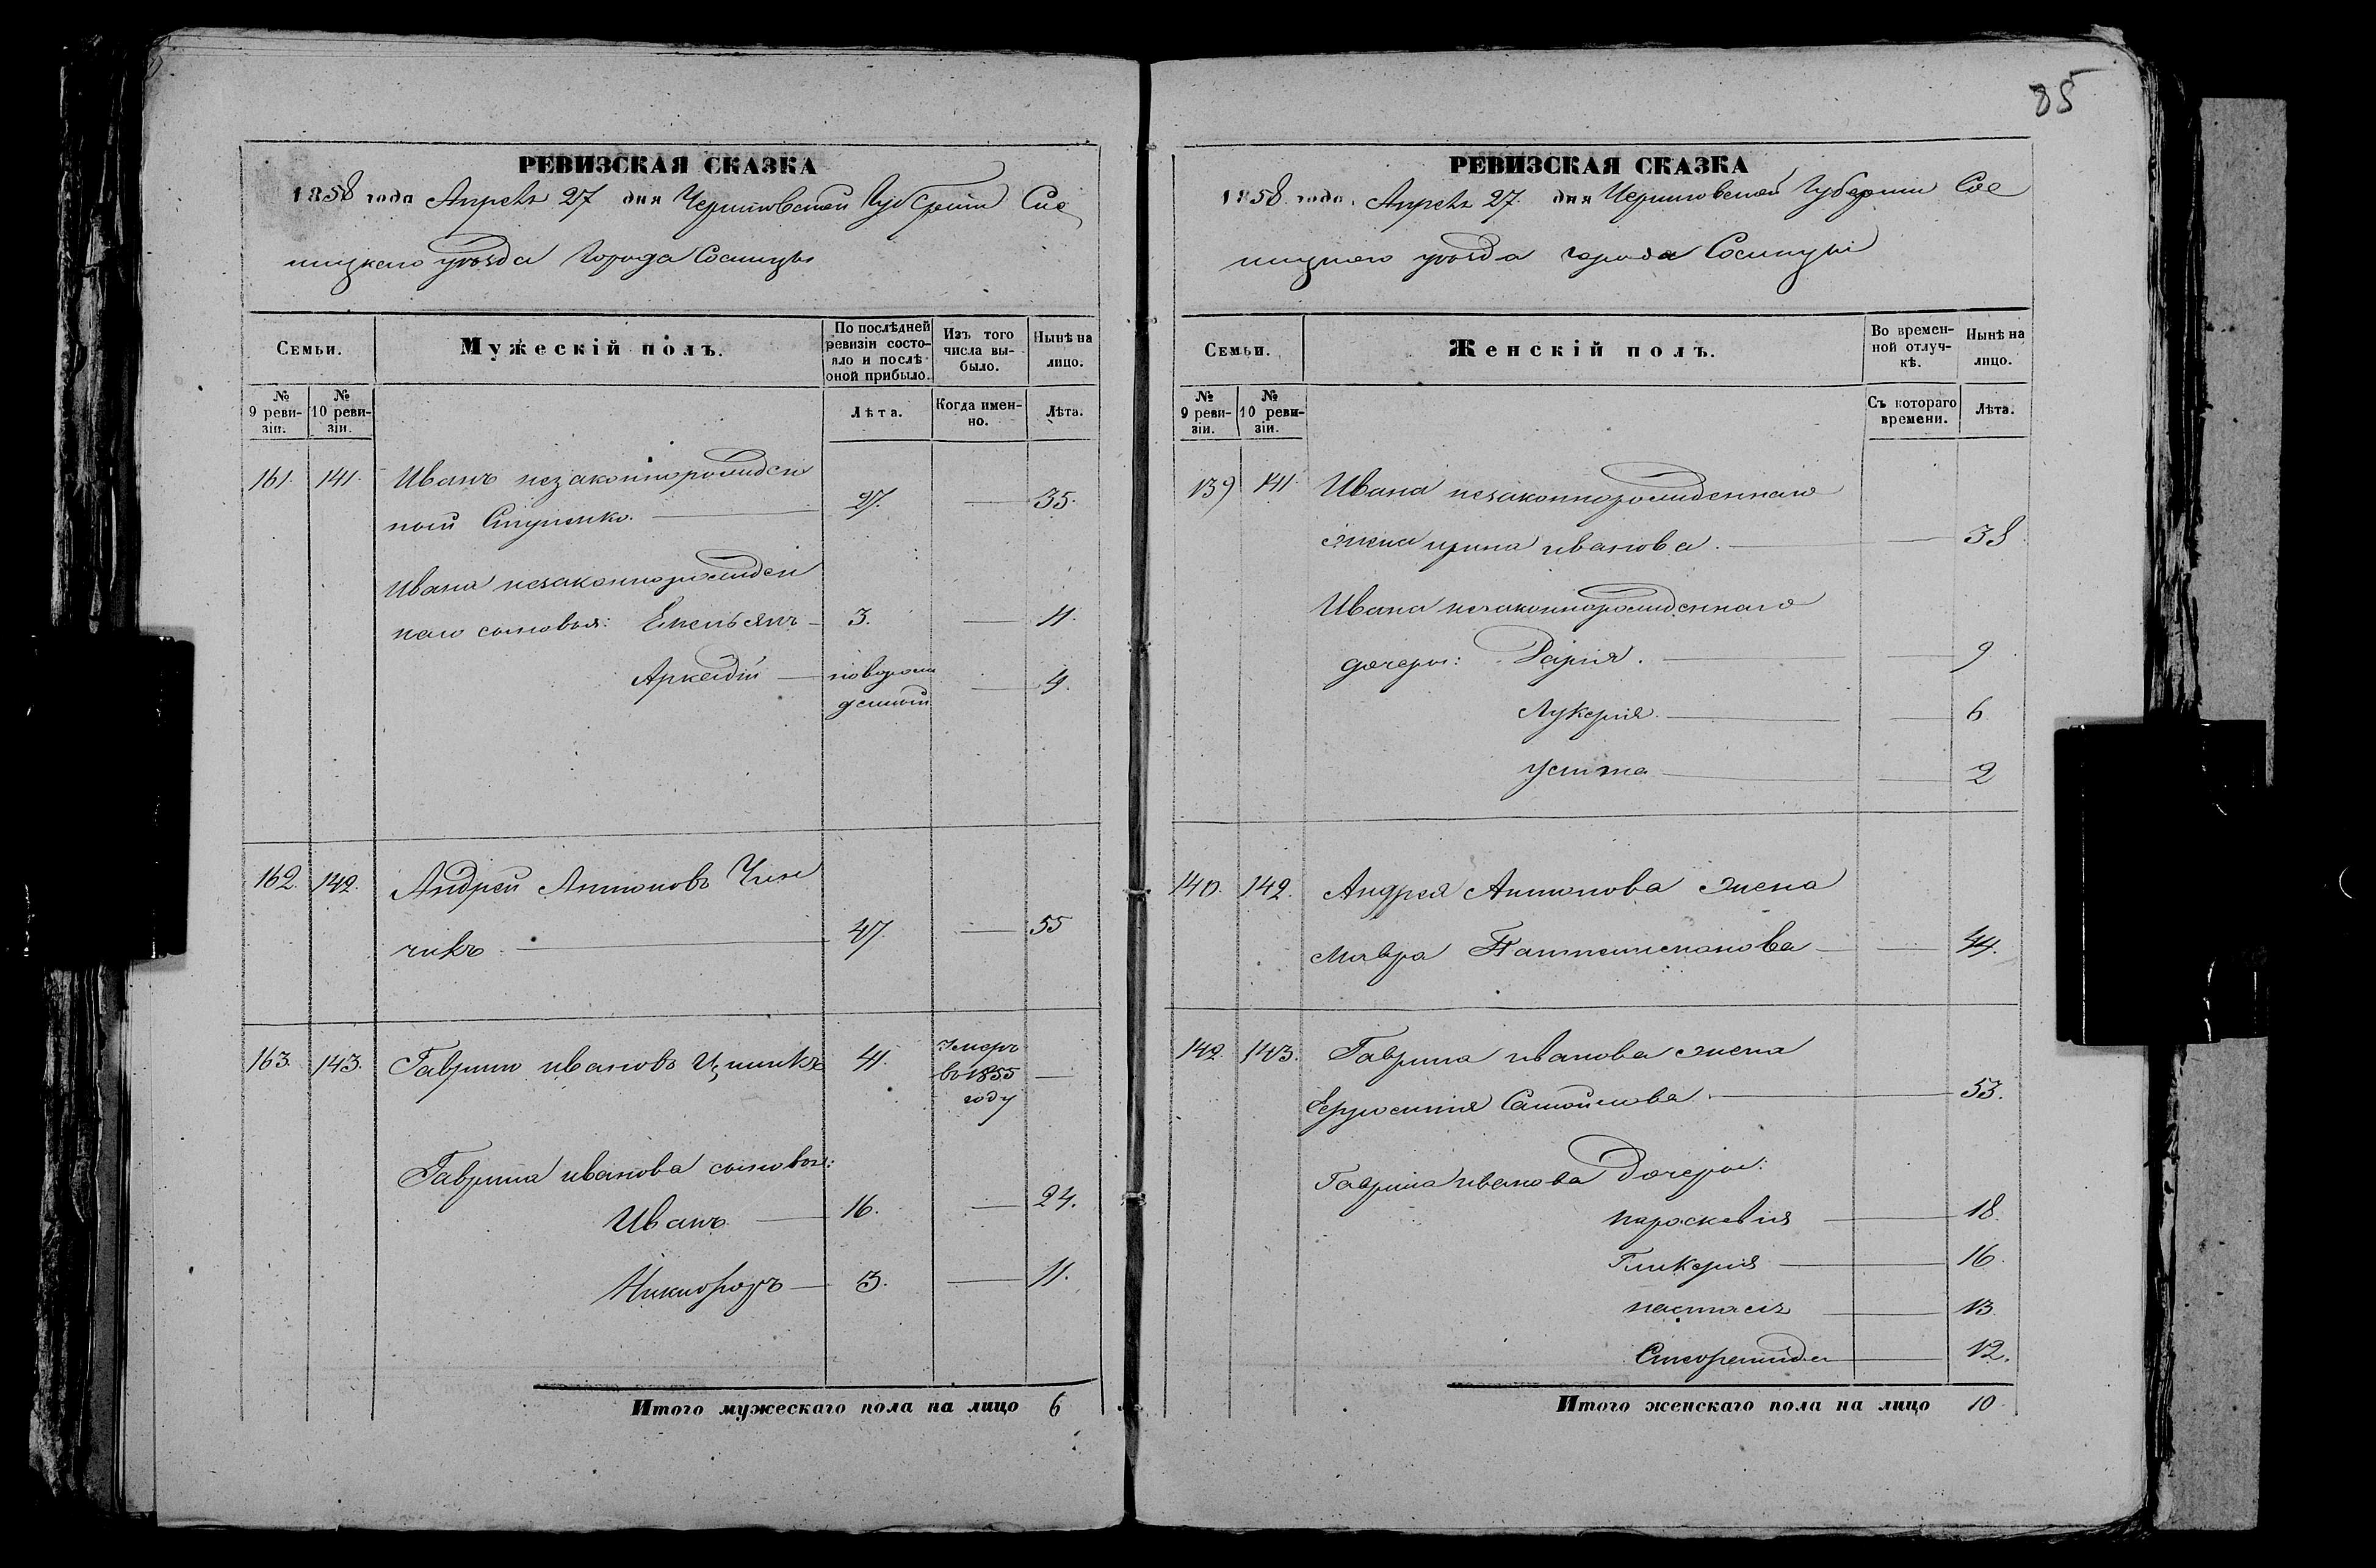 85
РЕВИЗСКАЯ СКАЗКА
1858 года Апреля 27 дня Черниговской Губернии Сос
ницкаго уѣзда Города Сосницы
Семьи.
Мужескій полъ.
По послѣдней ревизіи состояло и послѣ оной прибыло.
Изъ того числа выбыло.
Нынѣ на лицо.
№ 9 ревизіи.
№ 10 ревизіи.
Лѣта.
Когда именно.
Лѣта.
161. 141. Иванъ незаконнорожден
ный Ступенко. 27. 35.
Ивана незаконнорожден
наго сыновья: Емельянъ 3. 11.
Аркадій новорож
денный 9.
162. 142. Андрей Антоновъ
чикъ 47. 55
163. 143. Гаврило Ивановъ 41. умеръ
въ 1855
году
Гаврила Иванова сыновья:
Иванъ 16. 24.
Никифоръ 3. 11.
Итого мужескаго пола на лицо 6
РЕВИЗСКАЯ СКАЗКА
1858 года. Апреля 27. дня Черниговской Губернии Сос
ницкаго уѣзда города Сосницы
Семьи.
Женскій полъ.
Во временной отлучкѣ.
Нынѣ на лицо.
№ 9 ревизіи.
№ 10 ревизіи.
Съ котораго времени.
Лѣта.
139 141 Ивана незаконнорожденнаго
жена ирина иванова. 38
Ивана незаконнорожденнаго
дочери: Дария. 9
Лукерия. 6
Устина 2
140. 142. Андрея Антонова жена
Мавра 44.
142. 143. Гаврила иванова жена
Ефросиния Самойлова 53.
Гаврила иванова дочери:
параскевия 18.
Гликерия 16.
настасья 13
12.
Итого женскаго пола на лицо 10